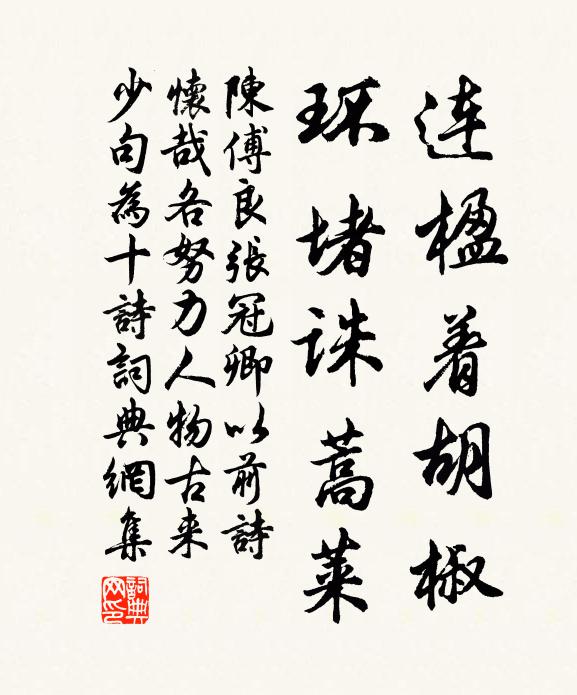 连楹着胡椒
环堵誅蒿莱
陳傅良張冠卿以前詩
懷哉各努力人物古来
少句為十詩詞典網集
詞典網印